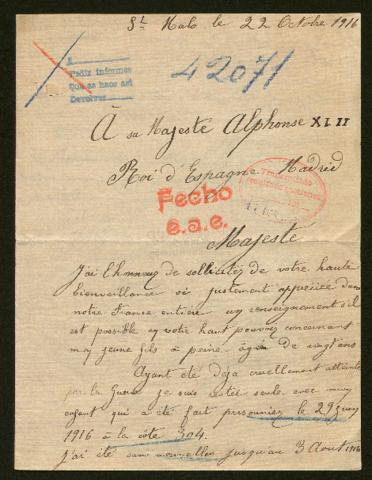 St Malo le 22 Octbre 1916
A
Pedir informes
Que se haga así
Devolver
42071
À sa Majesté Alphonse XIII
Roi d'Espagne Madrid
Fecho
e.a.e.
Majesté
J'ai l'honneur de solliciter de votre haute
bienveillance si justement appréciée dans
notre France entière un renseignement s'il
est possible à votre haut pouvoir concernant
mon jeune fils à peine âgé de vingt ans
Ayant été déjà cruellement atteinte
par la Guerre je suis restée seule avec mon
enfant qui a été fait prisonnier le 29
1916 à la côte 304.
J'ai été sans nouvelles jusqu'au 3 Aout 1916